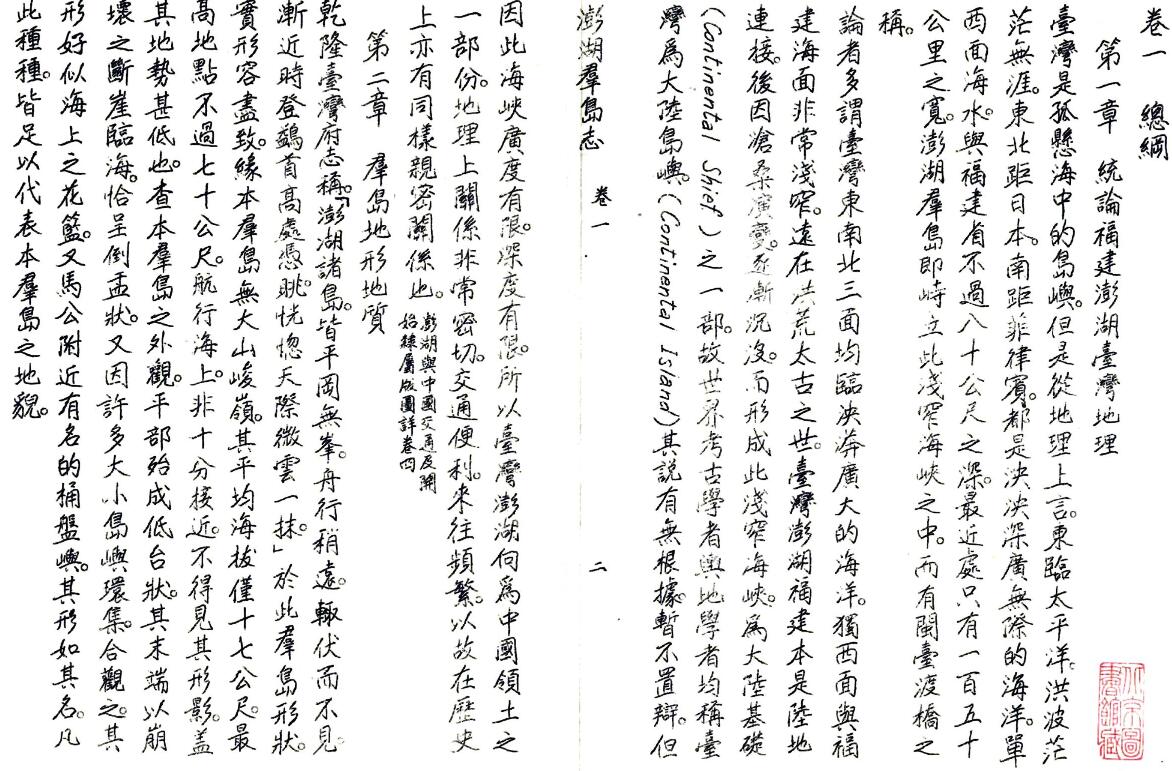 卷一　總綱
第一章　統論福建澎湖臺灣地理
臺灣是孤懸海中的島嶼。但是從地理上言。東臨太平洋。洪波茫
茫無涯。東北距日本。南距菲律賓。都是泱泱深廣無際的海洋。單
西面海水。與福建省不過八十公尺之深。最近處只有一百五十
公里之寬。澎湖羣島即峙立此淺窄海峽之中。而有閩臺渡橋之
稱。
論者多謂臺灣東南北三面均臨泱漭廣大的海洋。獨西面與福
建海面非常淺窄。遠在洪荒太古之世。臺灣澎湖福建本是陸地
連接。後因滄桑演變。逐漸沉沒。而形成此淺窄海峽。為大陸基礎
(Continental Shief)之一部。故世界考古學者與地學者均稱臺
灣為大陸島嶼。(Continental Island)其說有無根據。暫不置辯。但
澎湖羣島志　卷一　二
因此海峽廣度有限。深度有限。所以臺灣澎湖向為中國領土之
一部份。地理上關係非常密切。交通便利。來往頻繁。以故在歷史
上亦有同樣親密關係也。澎湖與中國交通及開
始隸屬版圖詳卷四
第二章　羣島地形地質
乾隆臺灣府志稱。「澎湖諸島。皆平岡無峯。舟行稍遠。輒伏而不見。
漸近時登鷁首高處憑眺。恍惚天際微雲一抹。」於此羣島形狀。
實形容盡致。緣本羣島無大山峻嶺。其平均海拔僅十七公尺。最
高地點不過七十公尺。航行海上。非十分接近。不得見其形影。蓋
其地勢甚低也。查本羣島之外觀。平部殆成低台狀。其末端以崩
壞之斷崖臨海。恰呈倒盂狀。又因許多大小島嶼環集。合觀之。其
形好似海上之花籃。又馬公附近有名的桶盤嶼。其形如其名。凡
此種種。皆足以代表本羣島之地貌。